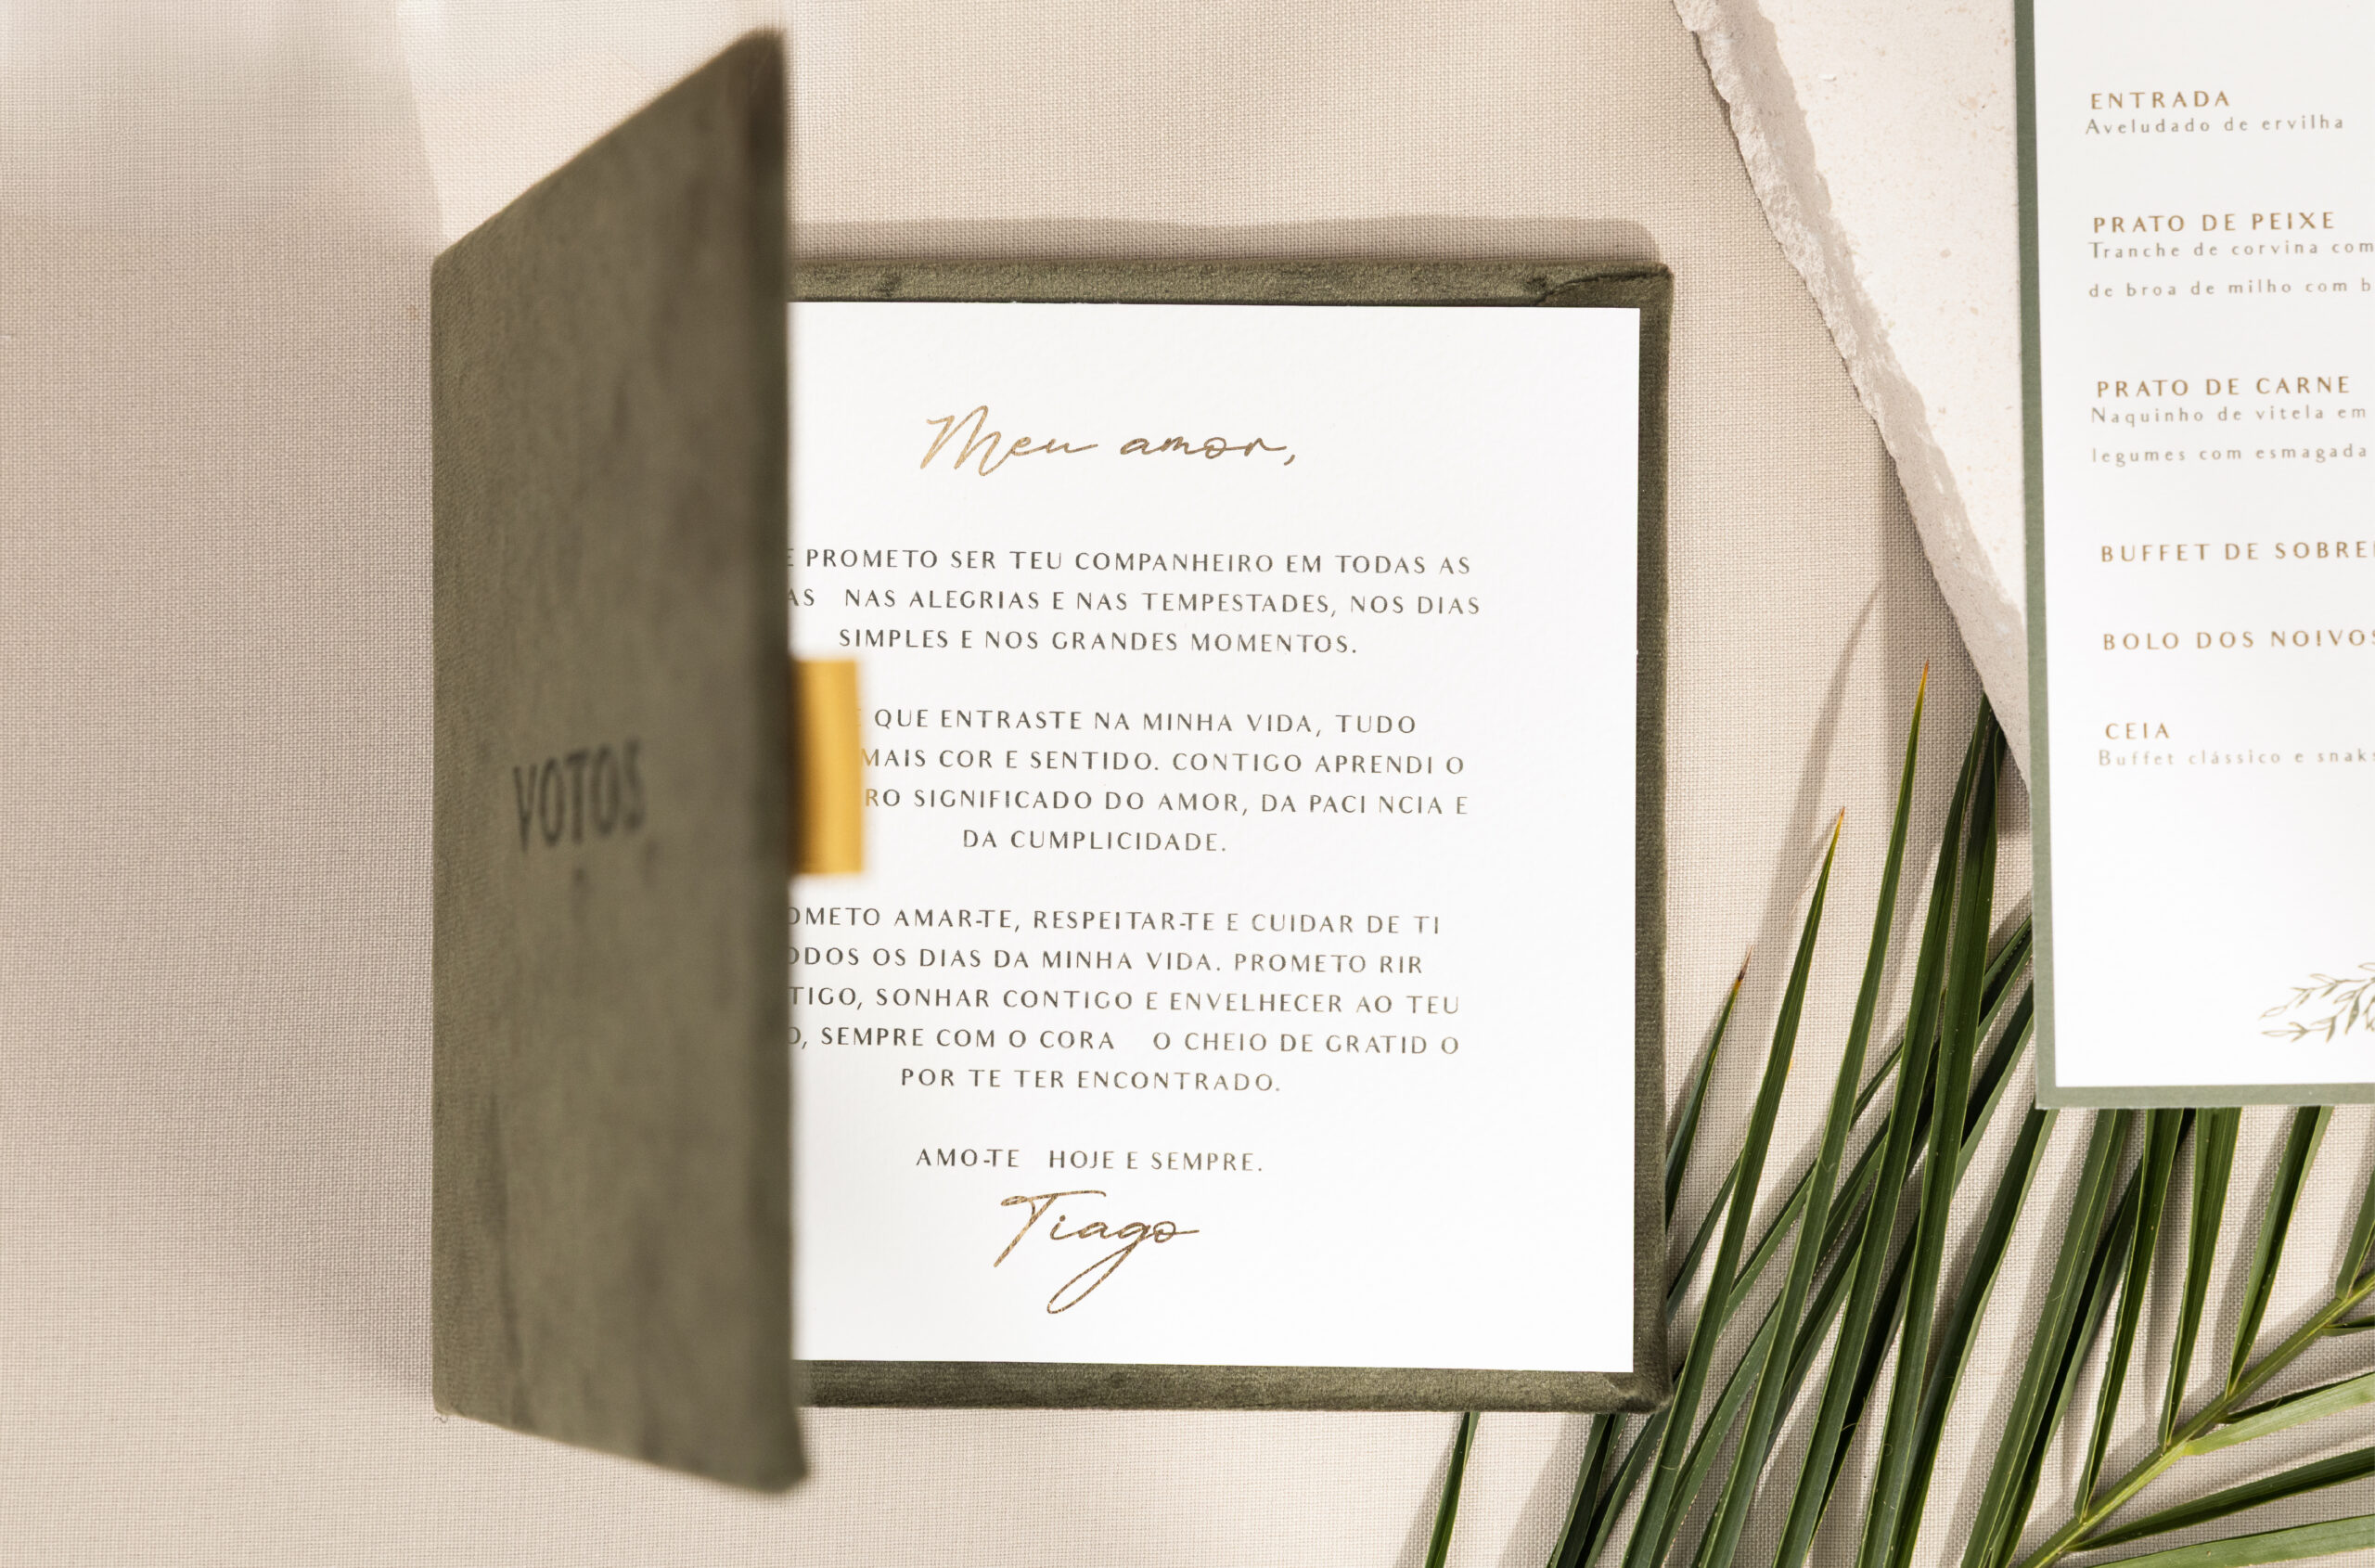 VOTOS
Meu amor,
E PROMETO SER TEU COMPANHEIRO EM TODAS AS
AS NAS ALEGRIAS E NAS TEMPESTADES, NOS DIAS
SIMPLES E NOS GRANDES MOMENTOS.
E QUE ENTRASTE NA MINHA VIDA, TUDO
MAIS COR E SENTIDO. CONTIGO APRENDI O
RO SIGNIFICADO DO AMOR, DA PACI NCIA E
DA CUMPLICIDADE.
OMETO AMAR-TE, RESPEITAR-TE E CUIDAR DE TI
ODOS OS DIAS DA MINHA VIDA. PROMETO RIR
TIGO, SONHAR CONTIGO E ENVELHECER AO TEU
O, SEMPRE COM O CORA O CHEIO DE GRATID O
POR TE TER ENCONTRADO.
AMO-TE HOJE E SEMPRE.
Tiago
ENTRADA
Aveludado de ervilha
PRATO DE PEIXE
Tranche de corvina com
de broa de milho com b
PRATO DE CARNE
Naquinho de vitela em
legumes com esmagada
BUFFET DE SOBRE
BOLO DOS NOIVOS
CEIA
Buffet clássico e snaks